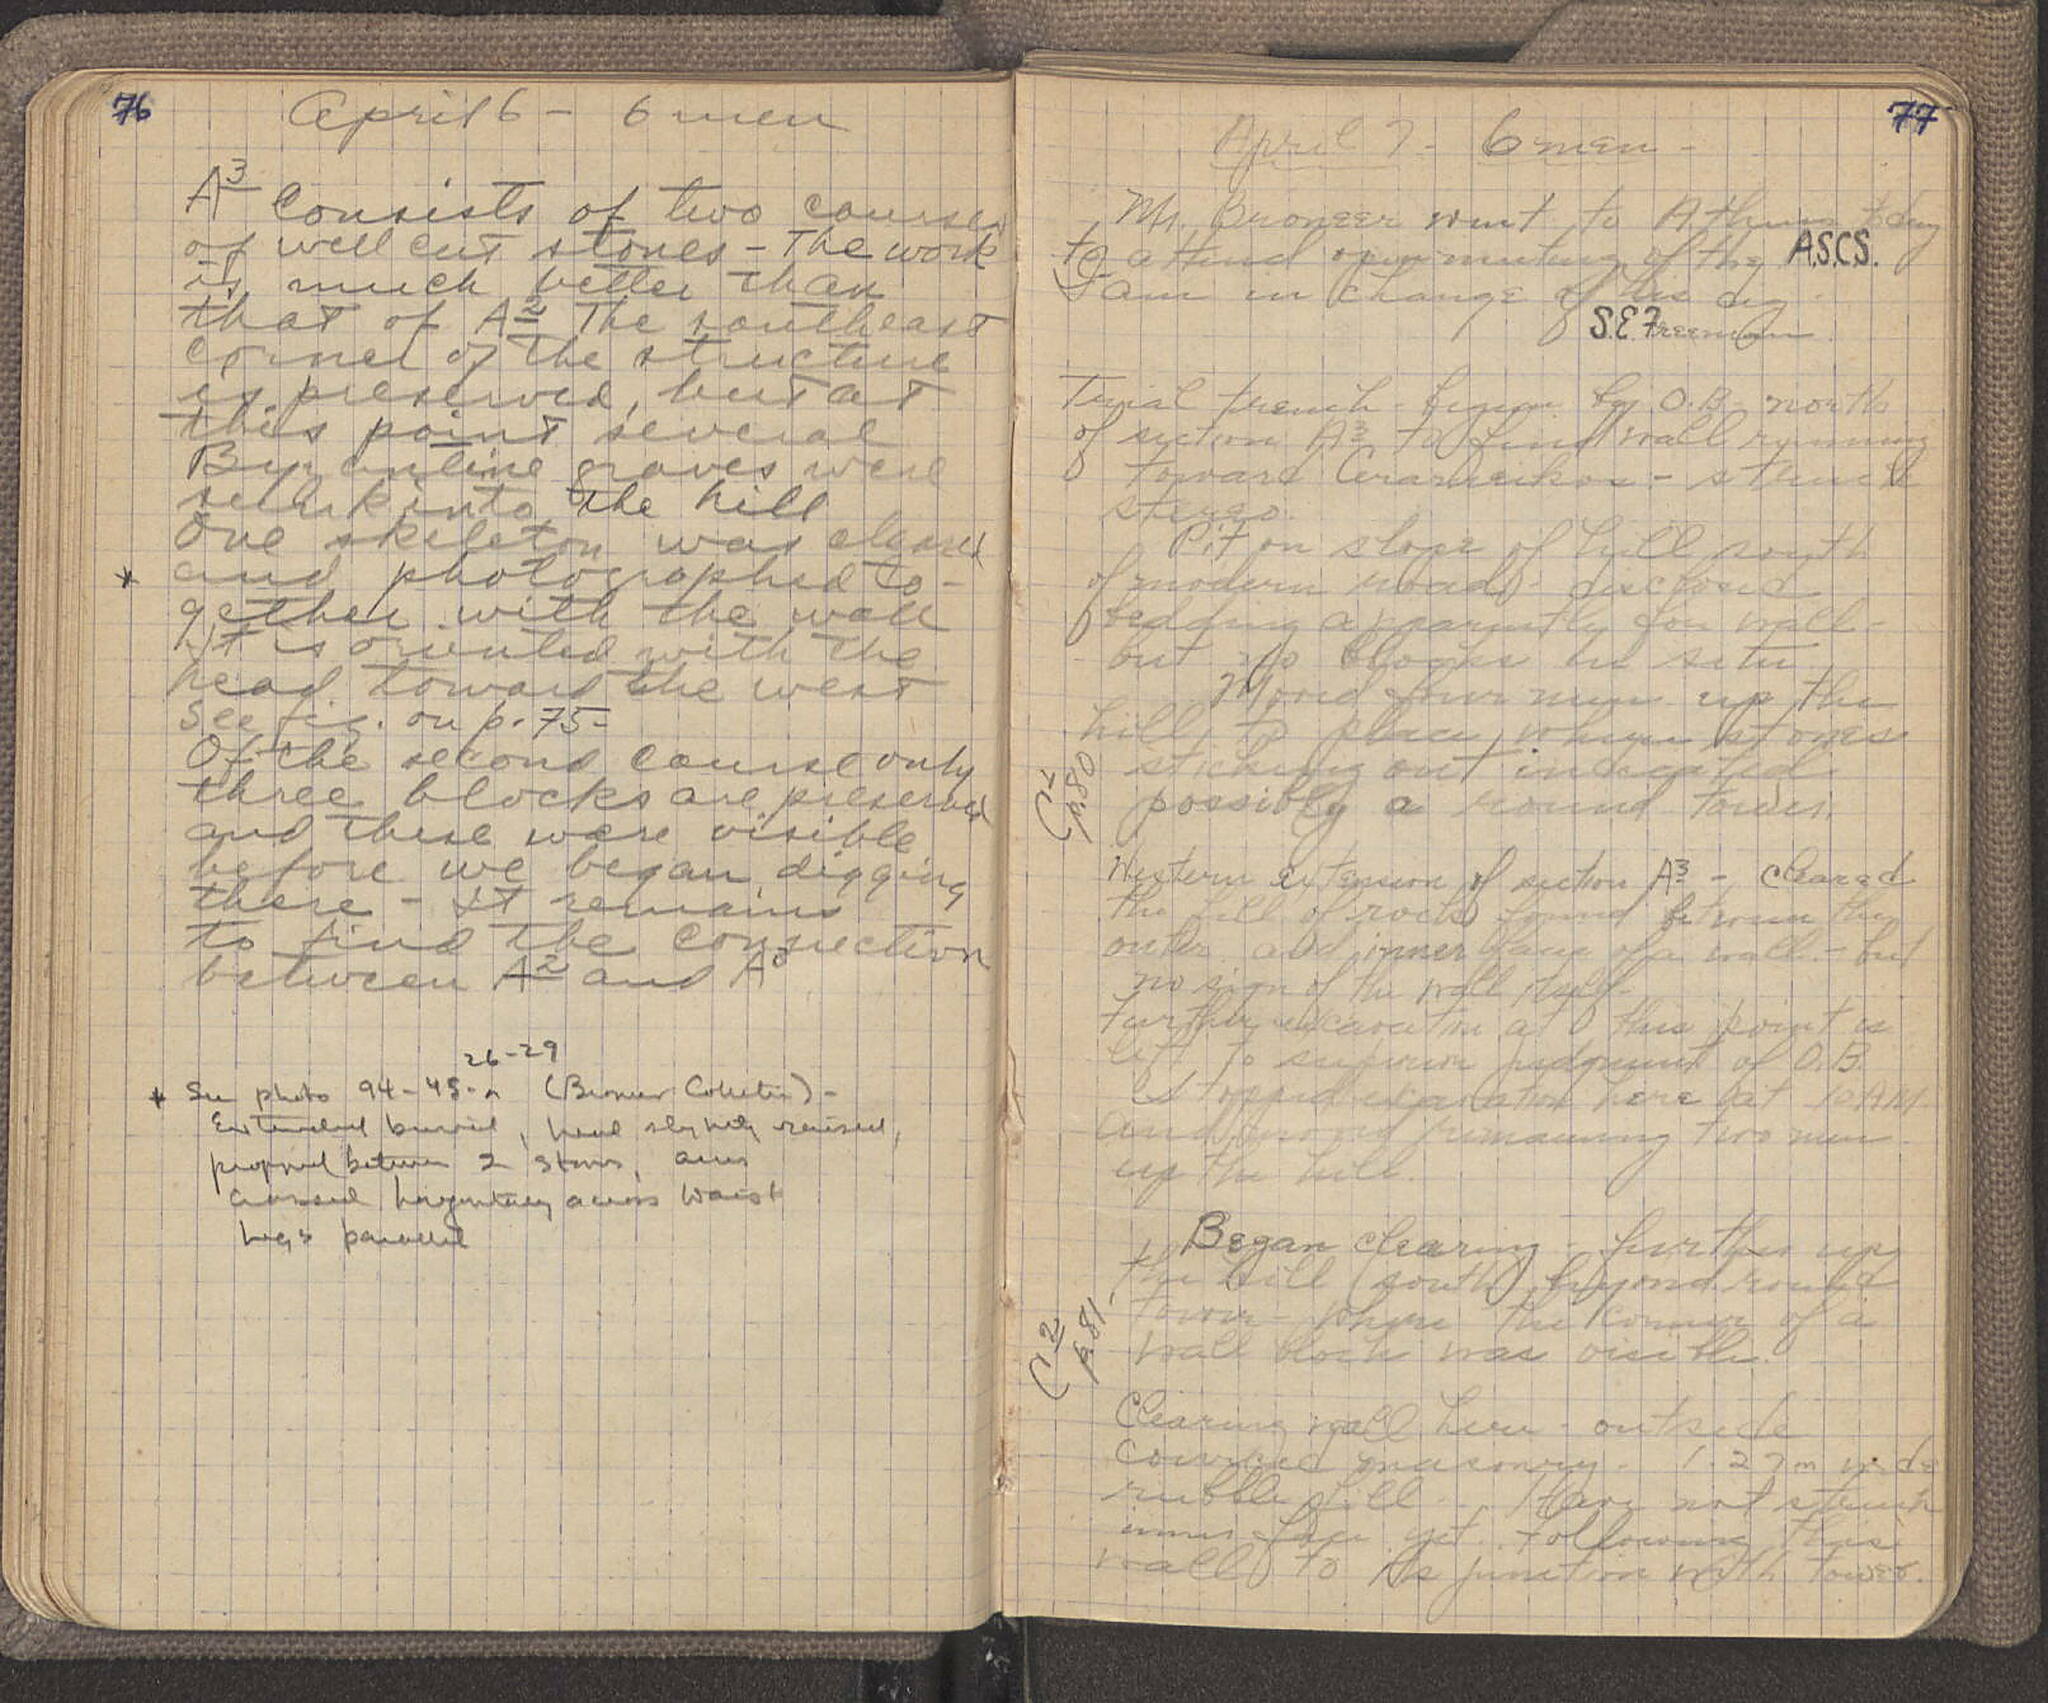 76
April 6 - 6 men
A3 Consists of two courses
of well cut stones - The work
is much better than
that of A2 The southeast
corner of the structure
is preserved, but at
this point several
Byzantine graves were
sunk into the hill
One skeleton was cleared
* and photographed to-
gether with the wall
It is oriented with the
head toward the west
See fig. on p. 75-
Of the second course only
three blocks are preserved
and these were visible
before we began digging
there - It remains
to find the connection
between A2 and A3
26-29
* See photo 94-45- (Broneer Collection) -
Extended burial, head slightly raised,
propped between 2 stones, arms
crossed horizontally across waist
legs parallel
77
April 7 - 6 men -
Mr. Broneer went to Athens today
to attend open meeting of the A.S.C.S.
I am in charge of his dig.
S.E. Freeman
Trial trench begun by O.B. north
of section A3 to find wall running
toward Cerameikos - struck
stereo.
Pit on slope of hill south
of modern road - disclosed
bedding apparently for wall -
but no blocks in situ
Moved four men up the
hill to place where stones
sticking out indicated
possibly a round tower.
C1
p.80
Western extension of section A3 - cleared
the fill of rock found between the
outer and inner face of a wall - but
no sign of the wall itself -
Further excavation at this point is
left to superior judgment of O.B.
Stopped excavation here at 10 AM
and moved remaining two men
up the hill.
Began clearing - further up
the hill (south) beyond round
tower - where the corner of a
wall block was visible.
C2
p.81-
Clearing wall here - outside
coursed masonry - 1.27m wide
rubble fill - Have not struck
inner face yet. Following this
wall to its junction with tower.